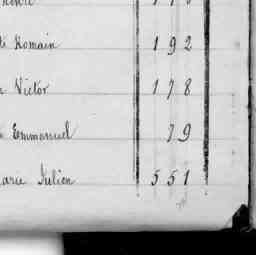 Romain 192
Victor 178
Emmanuel 79
Julien 551